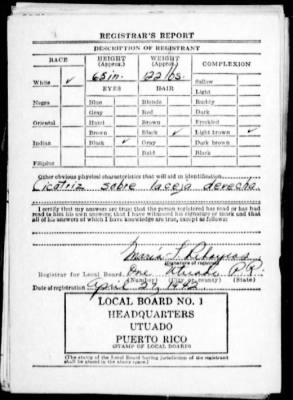 REGISTRAR'S REPORT
DESCRIPTION OF REGISTRANT
RACE HEIGHT (Approx.) WEIGHT (Approx.) COMPLEXION
White ✓ 65 in. 122 lbs. Sallow
EYES HAIR Light
Negro Blue Blonde Ruddy
Gray Red Dark
Oriental Hazel Brown Freckled
Brown Black ✓ Light brown ✓
Indian Black ✓ Gray Dark brown
Bald Black
Filipino
Other obvious physical characteristics that will aid in identification
Cicatriz sobre la ceja derecha
I certify that my answers are true; that the person registered has read or has had
read to him his own answers; that I have witnessed his signature or mark and that
all of his answers of which I have knowledge are true, except as follows:
Maria
(Signature of registrar)
Registrar for Local Board One Utuado P.R.
(Number) (City or county) (State)
Date of registration April 27, 1942
LOCAL BOARD NO. 1
HEADQUARTERS
UTUADO
PUERTO RICO
(STAMP OF LOCAL BOARD)
(The stamp of the Local Board having jurisdiction of the registrant
shall be placed in the above space.)